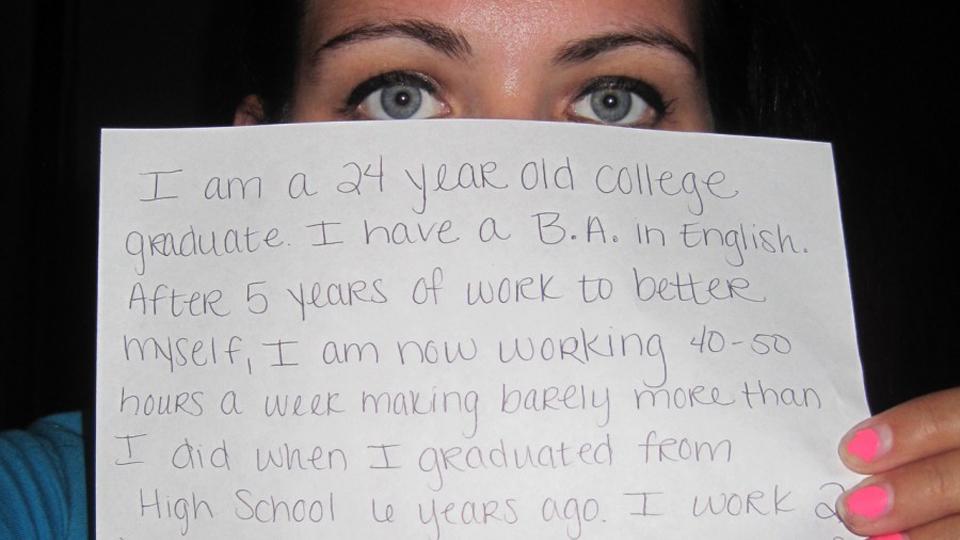 I am a 24 year old college
graduate. I have a B.A. in English.
After 5 years of work to better
myself, I am now working 40-50
hours a week making barely more than
I did when I graduated from
High School 6 years ago. I work 2